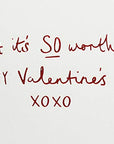 it's SO worth
Valentine's
XOXO